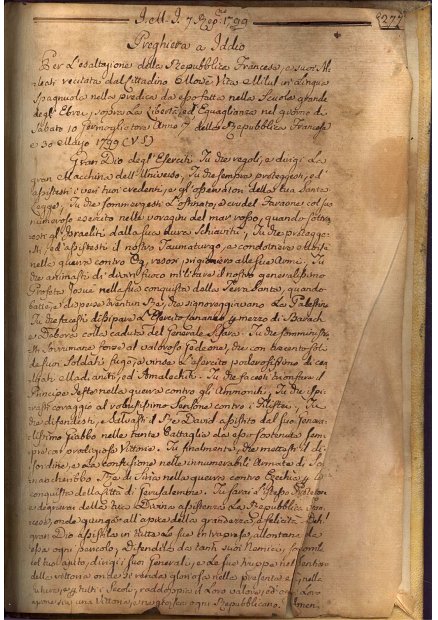 J. M. J. 7. 1799 277
Preghiera a Iddio
Per l'esaltazione della Repubblica Francese, e suoi
recitata dal Cittadino Mosè Vita in Lingua
Spagnuola nella predica da esso fatta nella Scuola grande
degl'Ebrei, sopra la Libertà, ed Eguaglianza nel giorno di
Sabato 10 Anno 7 della Repubblica Francese
e 30 1799 (V. S.)
Gran Dio degl'Eserciti Tu che regoli, e dirigi la
gran Macchina dell'Universo, Tu che sempre proteggesti, ed
assistesti i veri tuoi credenti, e gl'osservatori della tua Santa
Legge, Tu che sommergesti l'ostinato, e crudel Faraone col suo
numeroso esercito nelle voragini del mar rosso, quando
gl'Israeliti dalla sua dura Schiavitù, Tu che
ed assistesti il nostro Taumaturgo, e condottiere Mosè
nella guerra contro Og, alle sue armi. Tu
che animasti di il nostro generalissimo
Profeta Josuè nella sua conquista della Terra Santa, quando
battè, e depose trentun Rè, che signoreggiavano la Palestina
Tu che facesti dissipare l'Esercito Cananeo per mezzo di Barach
e Debora colla caduta del Generale Sisara. Tu che
forze al valoroso Gedeone, che con trecento soli
de suoi Soldati fugò, e vinse l'esercito poderosissimo di
ed Amalechiti. Tu che facesti trionfare il
Principe Jefte nella guerra contro gli Ammoniti, Tu che
coraggio al robustissimo Sansone contro i Filistei, Tu
che difendesti, e salvasti il Rè David assistito dal suo
Gioabbo nelle tante Battaglie da esso sostenute
con prodigiose Vittorie. Tu finalmente, che mettesti il
e la confusione nelle innumerabili Armate di
Rè di Siria nella guerra contro Ezechia per la
conquista della Città di Gerusalemme. Tu sarai l'istesso Protettore
della tua Divina assistenza la Repubblica
onde giunga all'apice della grandezza, e felicità. Deh!
gran Dio assistila in tutte le sue Intraprese, allontana da
essa ogni pericolo, difendila da tanti suoi Nemici,
col tuo ajuto, dirigi i suoi Generali, e le sue truppe nel sentiero
della vittoria onde si renda gloriosa nella presente e nella
futura, e per tutti i Secoli, raddoppia il Loro valore,
una Vittoria, ogni Repubblicano. Amen.